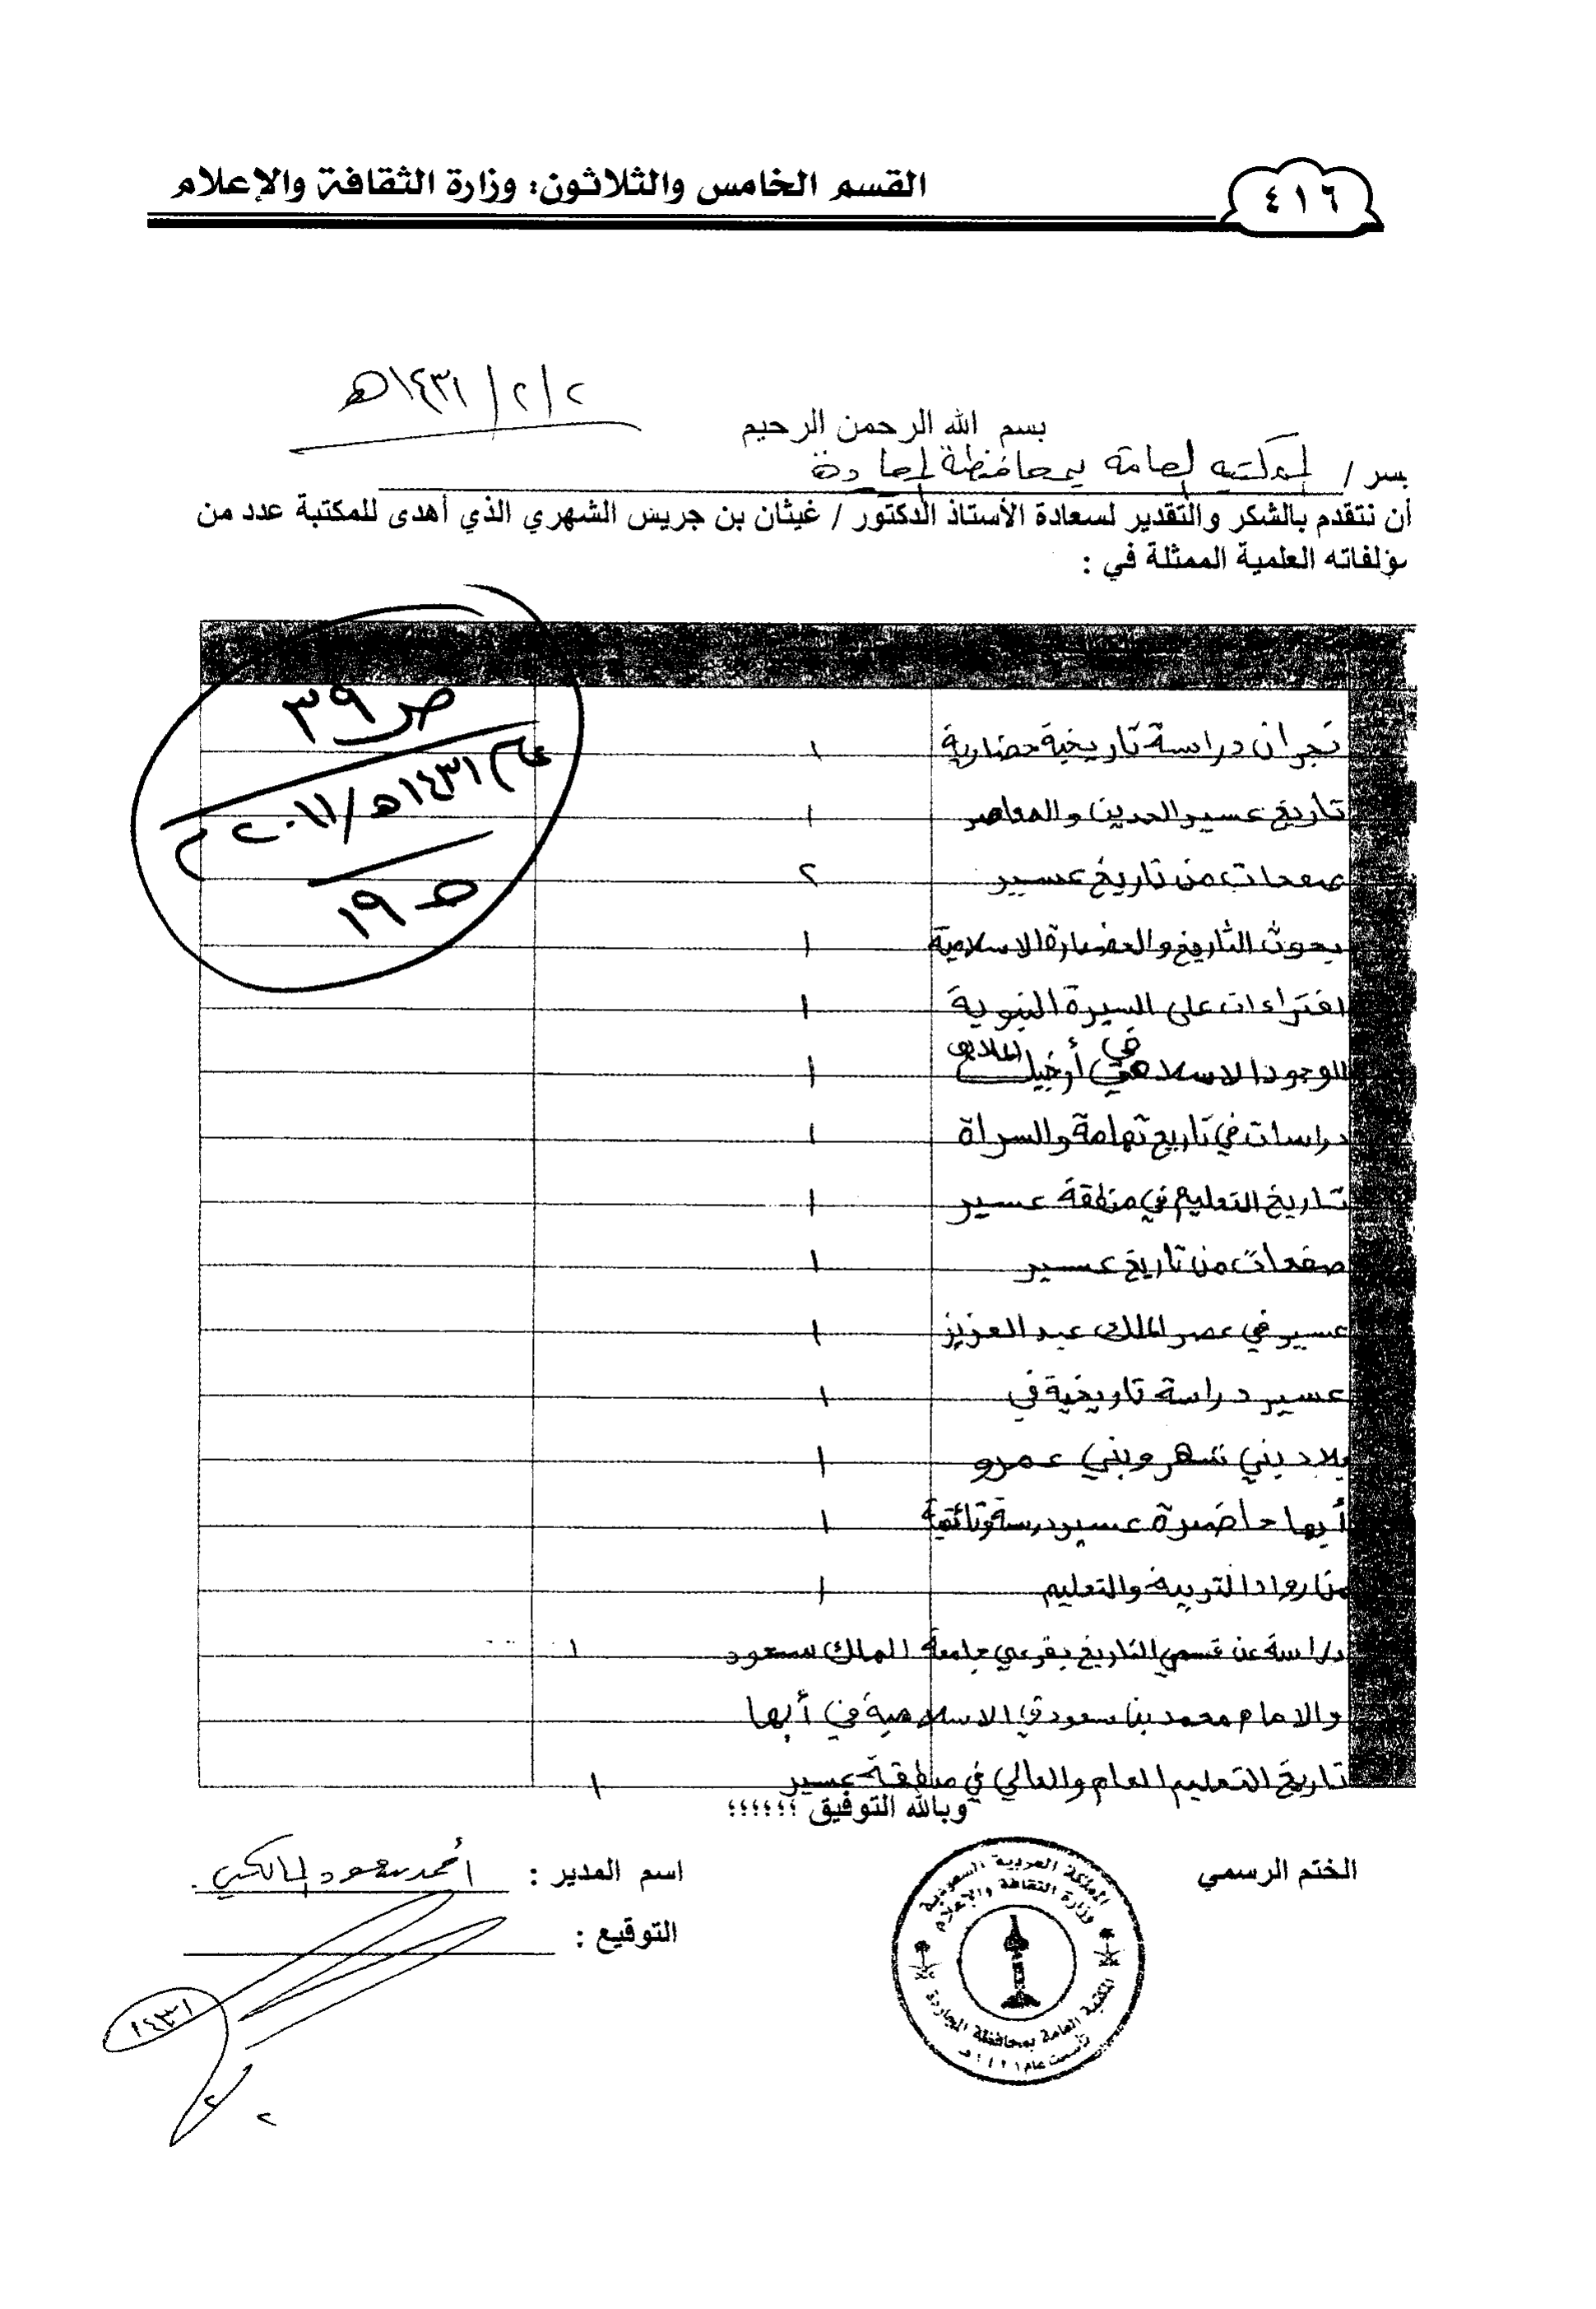 القسم الخامس والثلاثون: وزارة الثقافة والإعلام
٤١٦
٢/٢/١٤٣١هـ
بسم الله الرحمن الرحيم
بسر / المكتبه العامة بمحافظة المجاردة
أن نتقدم بالشكر والتقدير لسعادة الأستاذ الدكتور / غيثان بن جريس الشهري الذي أهدى للمكتبة عدد من
مؤلفاته العلمية الممثلة في :
ص ٣٩
عام ١٤٣١هـ/٢٠١١م
ص ١٩
نجران دراسة تاريخية حضارية ١
تاريخ عسير الحديث والمعاصر ١
صفحات من تاريخ عسير ٢
بحوث التاريخ والحضارة الاسلامية ١
افتراءات على السيرة النبوية ١
الوجود الاسلامي في أرخبيل الملايو ١
دراسات في تاريخ تهامة والسراة ١
تاريخ التعليم في منطقة عسير ١
صفحات من تاريخ عسير ١
عسير في عصر الملك عبد العزيز ١
عسير دراسة تاريخية في ١
بلاد بني شهر وبني عمرو ١
أبها حاضرة عسير درسة وثائقية ١
من رواد التربية والتعليم ١
دراسة عن قسمي التاريخ بفرعي جامعة الملك سعود ١
والامام محمد بن سعود الاسلامية في أبها
تاريخ التعليم العام والعالي في منطقة عسير ١
وبالله التوفيق ؛؛؛؛؛؛
الختم الرسمي
اسم المدير : أحمد سعود المالكي
التوقيع :
المملكة العربية السعودية
وزارة الثقافة والإعلام
المكتبة العامة بمحافظة المجاردة
تأسست عام
١٤٣١
٢
٢